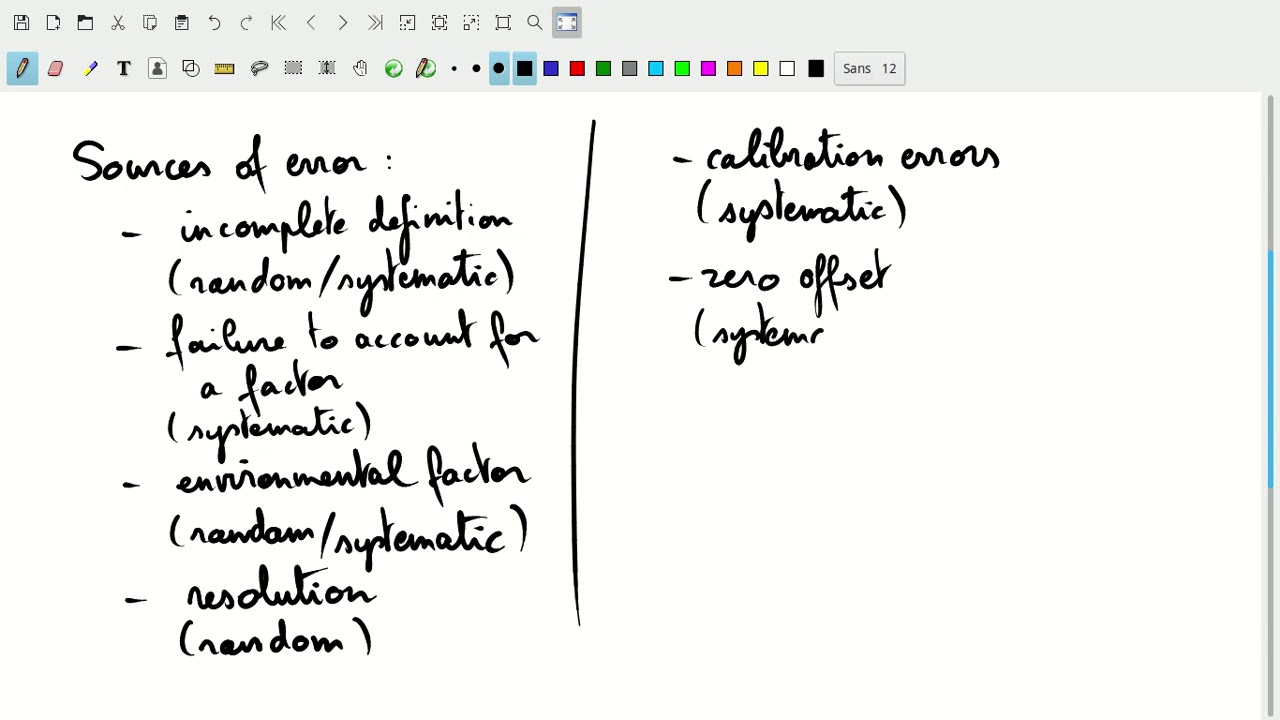 Sans 12
Sources of error :
- incomplete definition
(random/systematic)
- failure to account for
a factor
(systematic)
- environmental factor
(random/systematic)
- resolution
(random)
- calibration errors
(systematic)
- zero offset
(systema